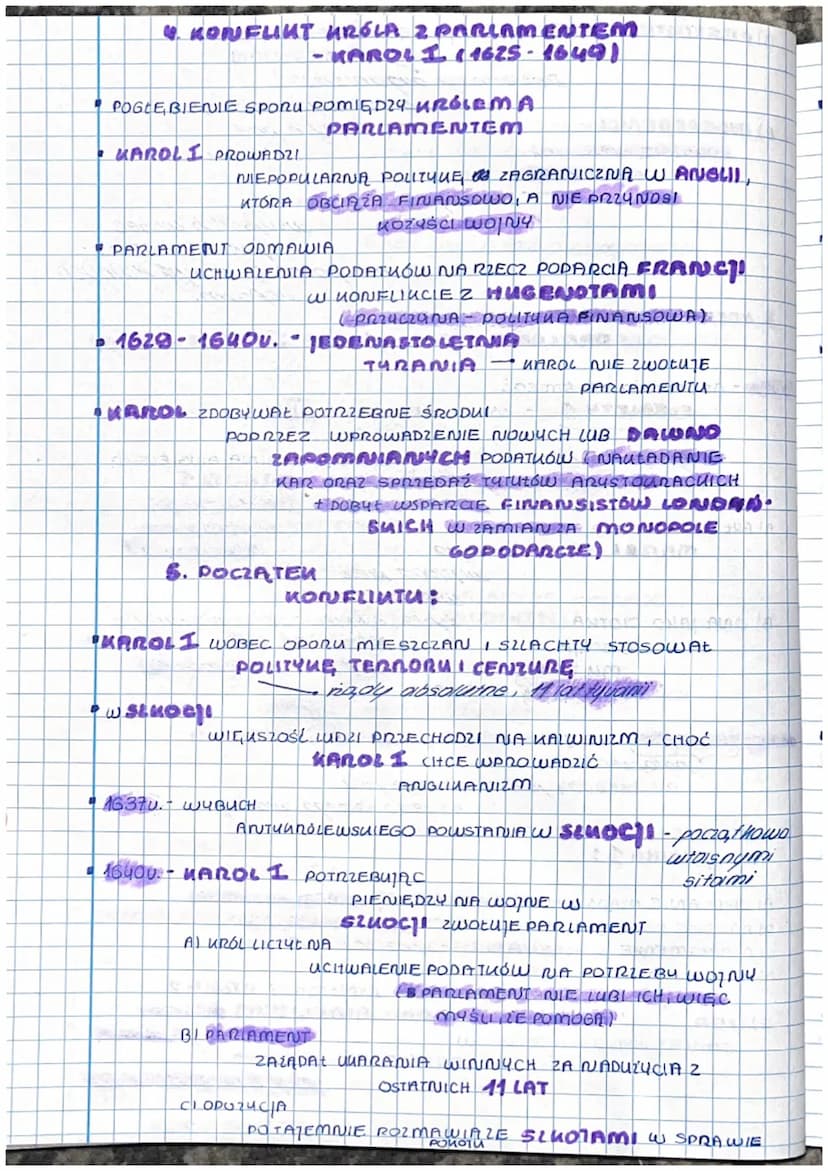 4. KONFLIKT KRÓLA Z PARLAMENTEM
- KAROL I (1625 - 1649)
• POGŁĘBIENIE SPORU POMIĘDZY KRÓLEM A
PARLAMENTEM
• KAROL I PROWADZI
NIEPOPULARNĄ POLITYKĘ ZAGRANICZNĄ W ANGLII,
KTÓRA OBCIĄŻA FINANSOWO, A NIE PRZYNOSI
KOŻYŚCI WOJNY
• PARLAMENT ODMAWIA
UCHWALENIA PODATKÓW NA RZECZ POPARCIA FRANCJI
W KONFLIKCIE Z HUGENOTAMI
(PRZYCZYNA - POLITYKA FINANSOWA)
• 1629 - 1640r. - JEDENASTOLETNIA
TYRANIA → KAROL NIE ZWOŁUJE
PARLAMENTU
• KAROL ZDOBYWAŁ POTRZEBNE ŚRODKI
POPRZEZ WPROWADZENIE NOWYCH LUB DAWNO
ZAPOMNIANYCH PODATKÓW (NAKŁADANIE
KAR ORAZ SPRZEDAŻ TYTUŁÓW ARYSTOKRACKICH
+ DOBYŁ WSPARCIE FINANSISTÓW LONDYŃ-
SKICH W ZAMIAN ZA MONOPOLE
GOPODARCZE)
5. POCZĄTEK
KONFLIKTU:
• KAROL I WOBEC OPORU MIESZCZAN I SZLACHTY STOSOWAŁ
POLITYKĘ TERRORU I CENZURĘ
→ rządy absolutne, 11 lat tyranii
• W SZKOCJI
WIĘKSZOŚĆ LUDZI PRZECHODZI NA KALWINIZM, CHOĆ
KAROL I CHCE WPROWADZIĆ
ANGLIKANIZM
• 1637r. - WYBUCH
ANTYKRÓLEWSKIEGO POWSTANIA W SZKOCJI - początkowo
własnymi
siłami
• 1640r. - KAROL I POTRZEBUJĄC
PIENIĘDZY NA WOJNE W
SZKOCJI ZWOŁUJE PARLAMENT
A) KRÓL LICZYŁ NA
UCHWALENIE PODATKÓW NA POTRZEBY WOJNY
(PARLAMENT NIE LUBI ICH, WIĘC
MYŚLI, ŻE POMOGĄ)
B) PARLAMENT
ZAŻĄDAŁ UKARANIA WINNYCH ZA NADUŻYCIA Z
OSTATNICH 11 LAT
C) OPOZYCJA
POTAJEMNIE ROZMAWIA ZE SZKOTAMI W SPRAWIE
POKOJU